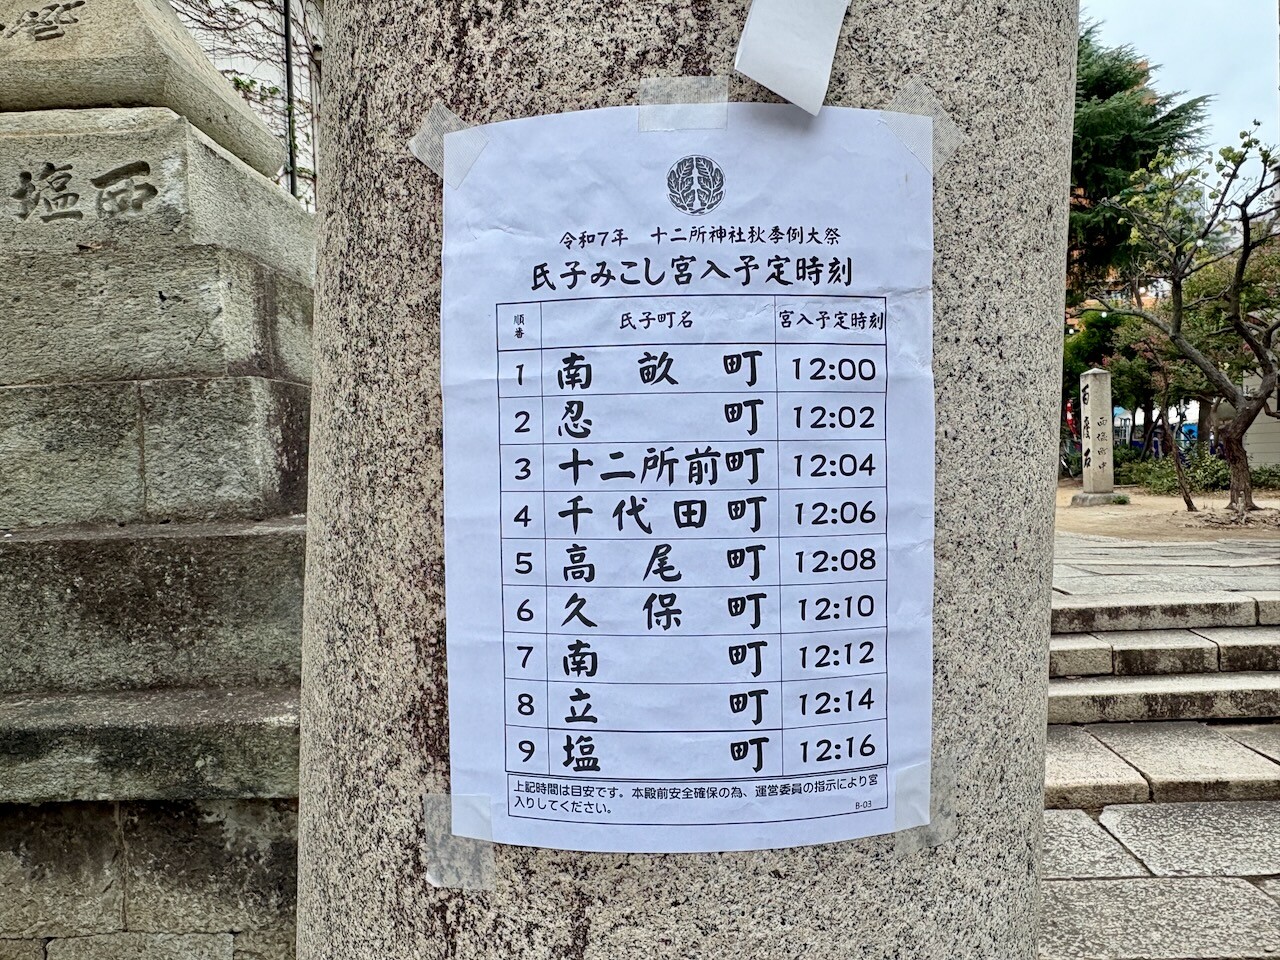 西塩
令和7年 十二所神社秋季例大祭
氏子みこし宮入予定時刻
順番 氏子町名 宮入予定時刻
1 南畝町 12:00
2 忍町 12:02
3 十二所前町 12:04
4 千代田町 12:06
5 高尾町 12:08
6 久保町 12:10
7 南町 12:12
8 立町 12:14
9 塩町 12:16
上記時間は目安です。本殿前安全確保の為、運営委員の指示により宮
入りしてください。
B-03
百度石